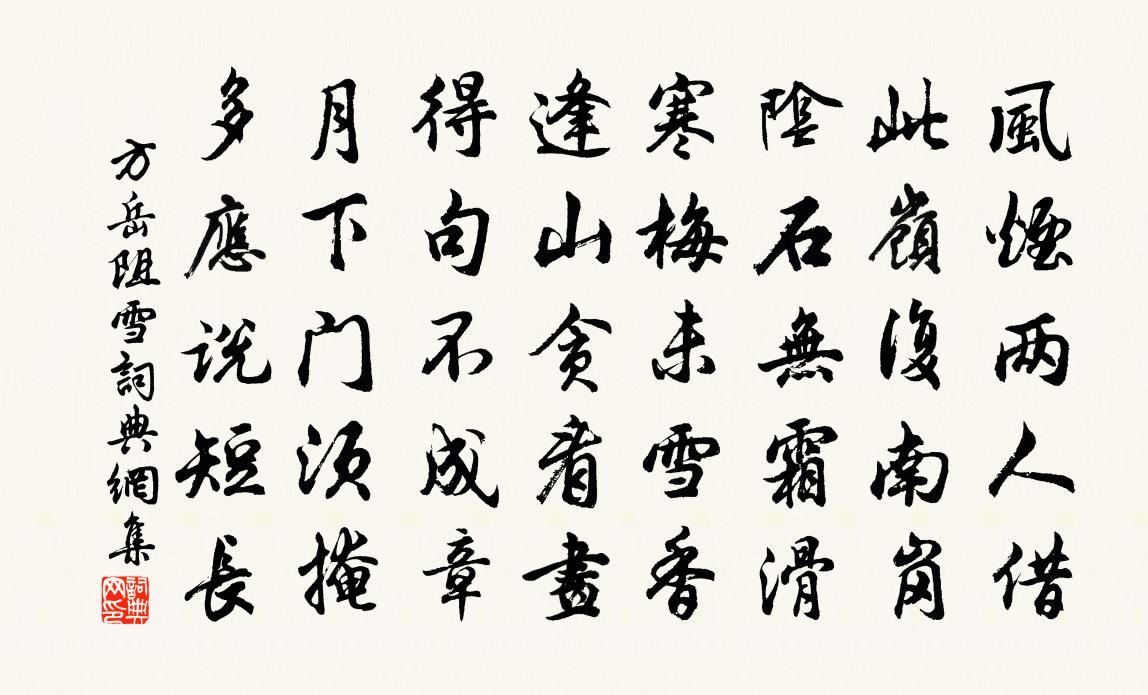 風煙两人借
此嶺復南崗
陰石無霜滑
寒梅未雪香
逢山貪看畫
得句不成章
月下门須掩
多應说短長
方岳阻雪詞典網集
詞典网印